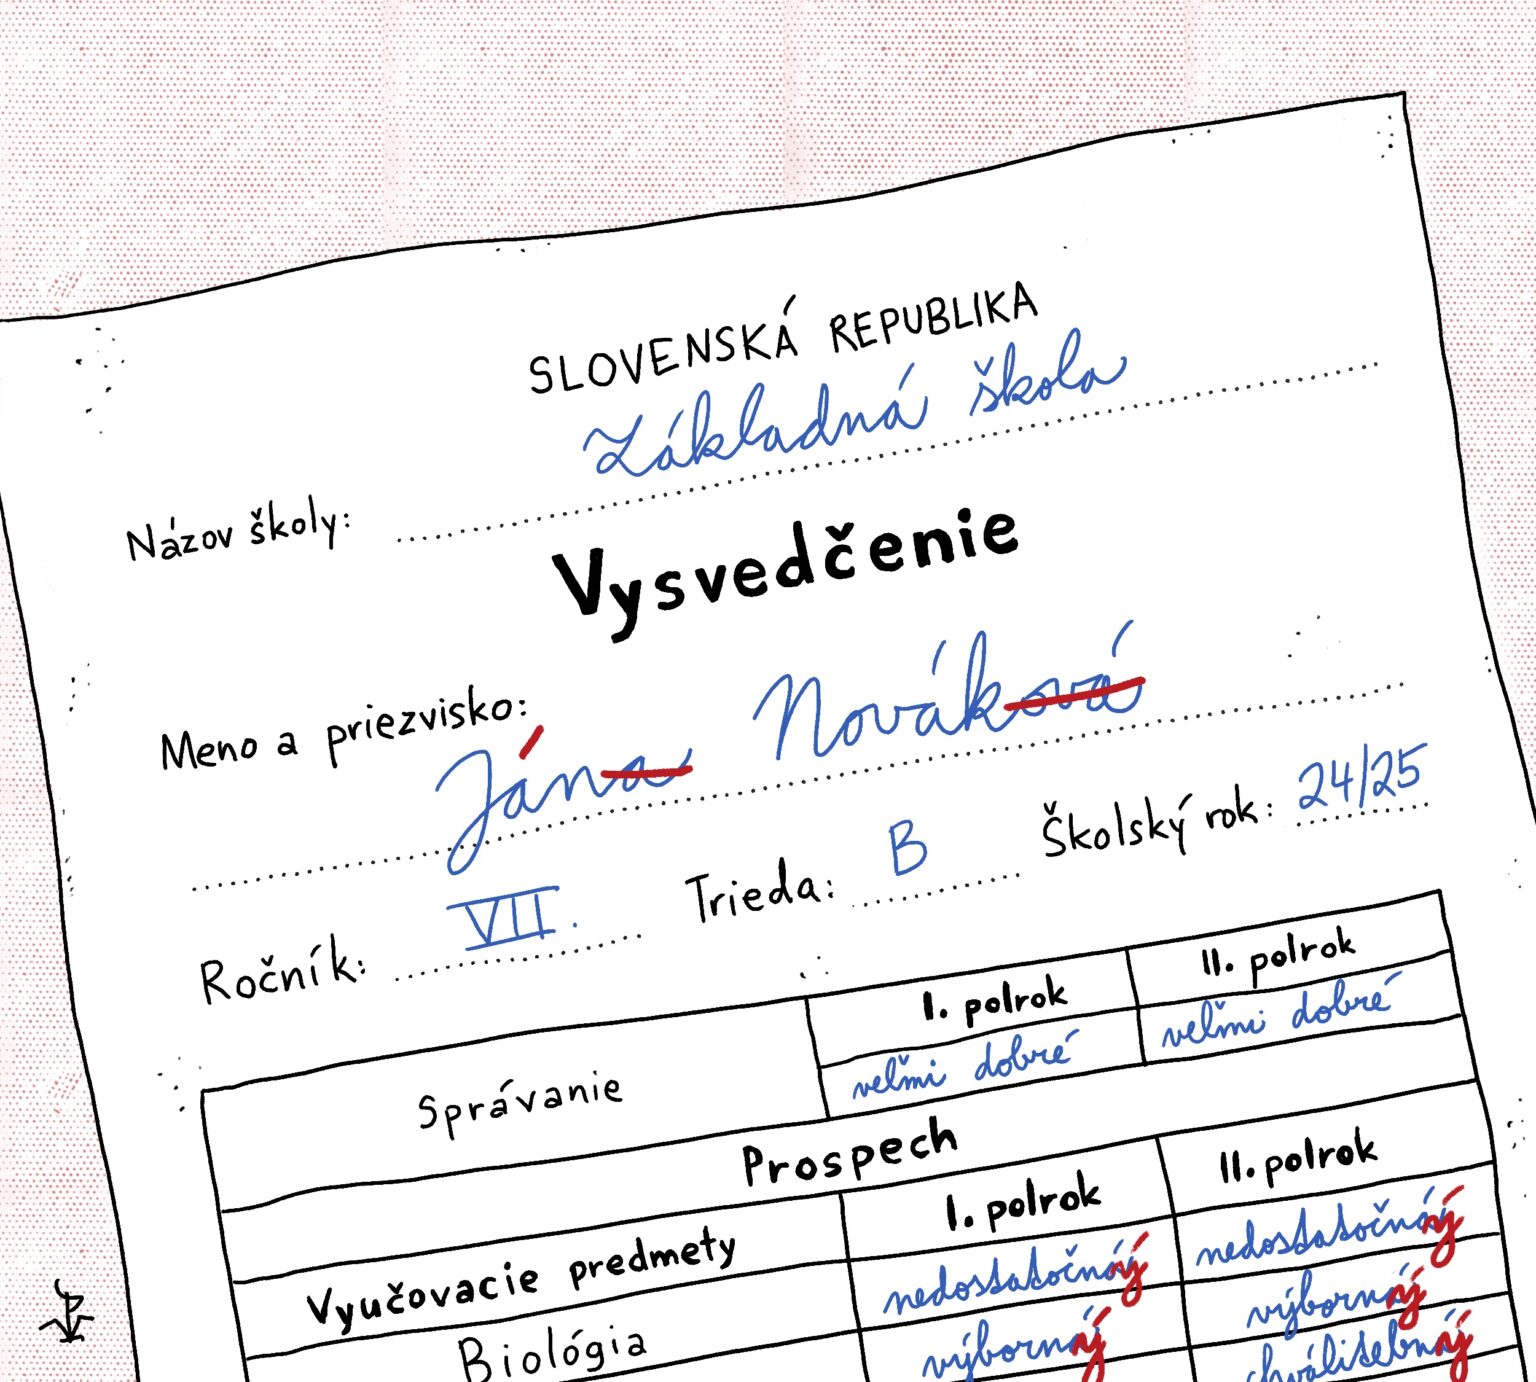 SLOVENSKÁ REPUBLIKA
Názov školy: Základná škola
Vysvedčenie
Meno a priezvisko:
Jána Nováková
Ročník: VII. Trieda: B Školský rok: 24/25
I. polrok II. polrok
Správanie veľmi dobré veľmi dobré
Prospech
Vyučovacie predmety I. polrok II. polrok
Biológia nedostatočný nedostatočný
výborný výborný
chválitebný